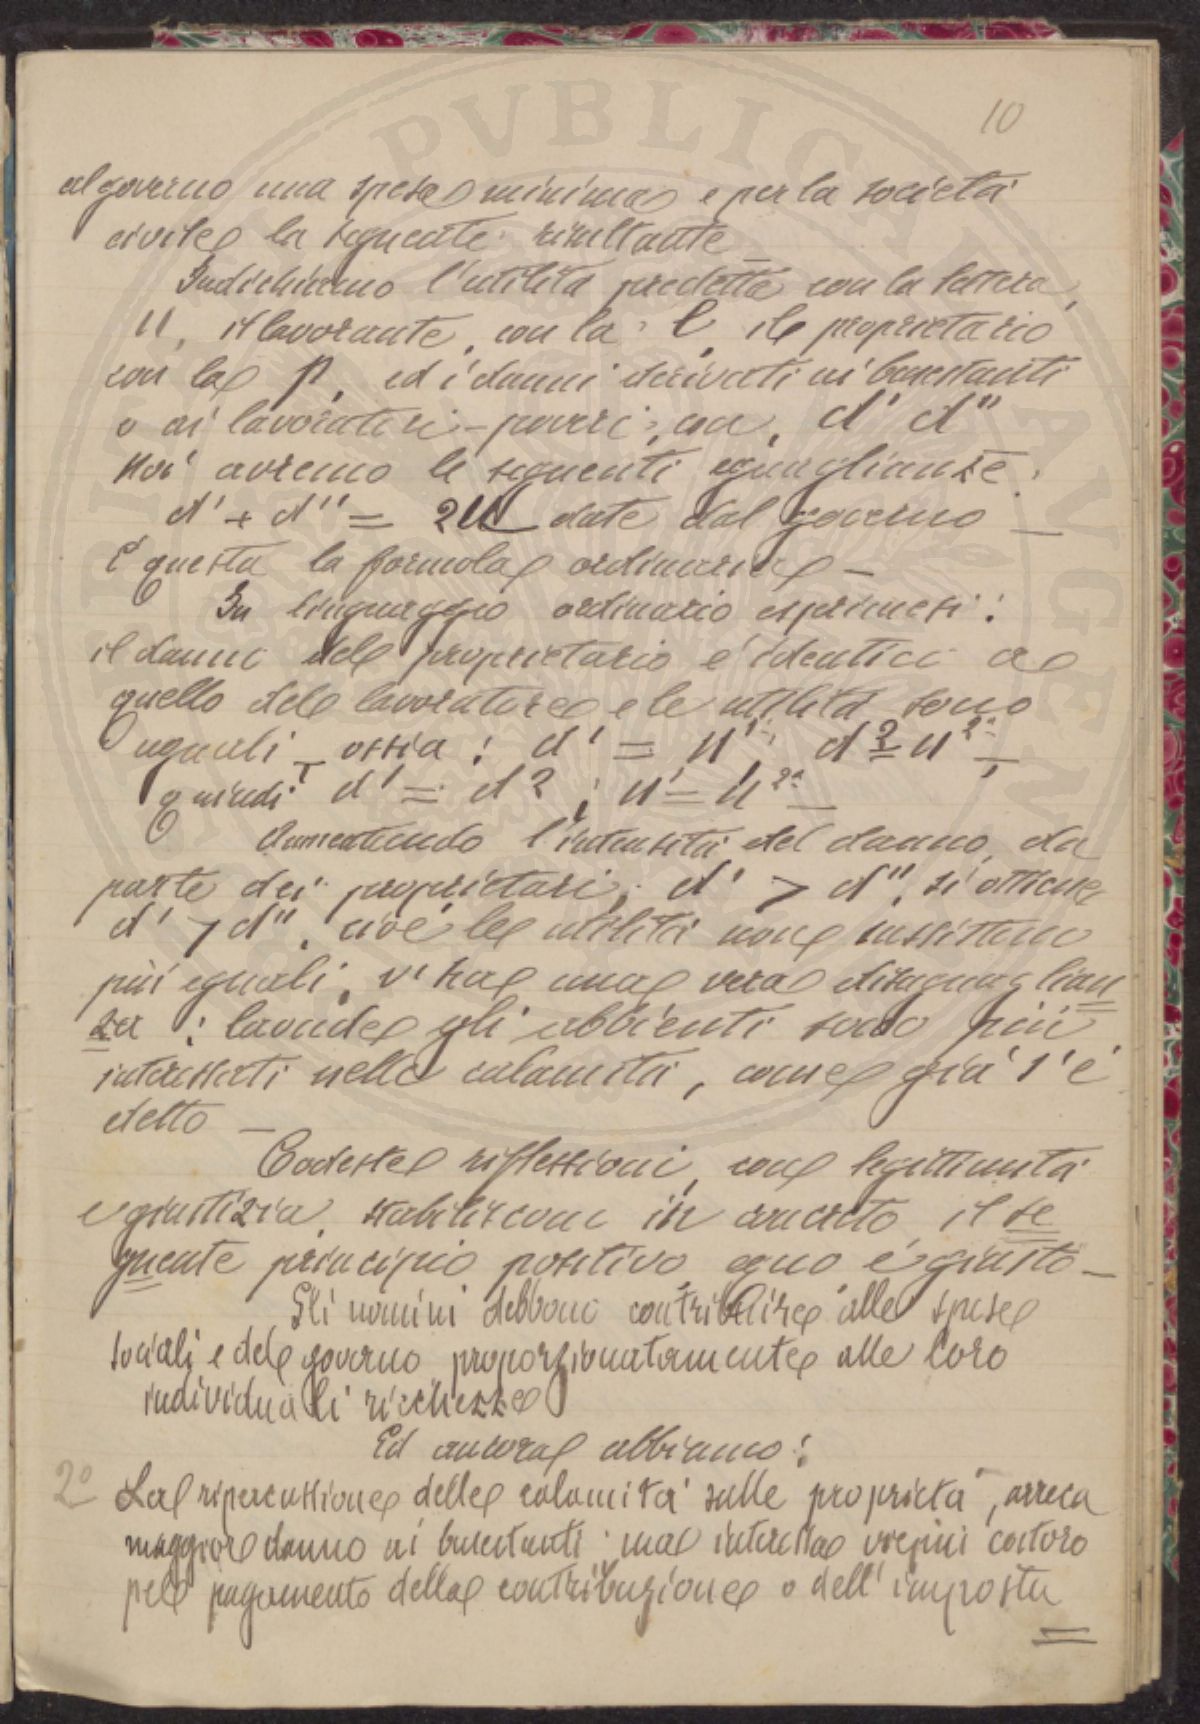 10
al governo una spesa minima e per la società
civile la seguente risultante
Indichiamo l'utilità predetta con la lettera,
U, il lavorante, con la: l, il proprietario
con la p, ed i danni derivati ai benestanti
o ai lavoratori-poveri: con, d' d''
Noi avremo le seguenti eguaglianze:
d' + d'' = 2U date dal governo —
È questa la formola ordinaria —
In linguaggio ordinario esprimesi:
il danno del proprietario e' identico a
quello del lavoratore e le utilità sono
uguali – ossia: d' = u' ; d2 = u2
quindi d' = d2 ; u' = u2 —
Aumentando l'intensità del danno, da
parte dei proprietari, d' > d'', si ottiene
d' > d'', cioè le utilità non sussistono
più eguali, v'ha una vera disaguaglian
za: laonde gli abbienti sono più
interessati nelle calamità, come già s'è
detto —
Codeste riflessioni, con legittimità
e giustizia, stabiliscono in concreto, il se
guente principio positivo, equo e giusto —
Gli uomini debbono contribuire alle spese
sociali e del governo proporzionatamente alle loro
individuali ricchezze
Ed ancora abbiamo:
2º La ripercussione delle calamità sulle proprietà, arreca
maggiore danno ai benestanti: ma interessa costoro
pel pagamento della contribuzione o dell'imposta